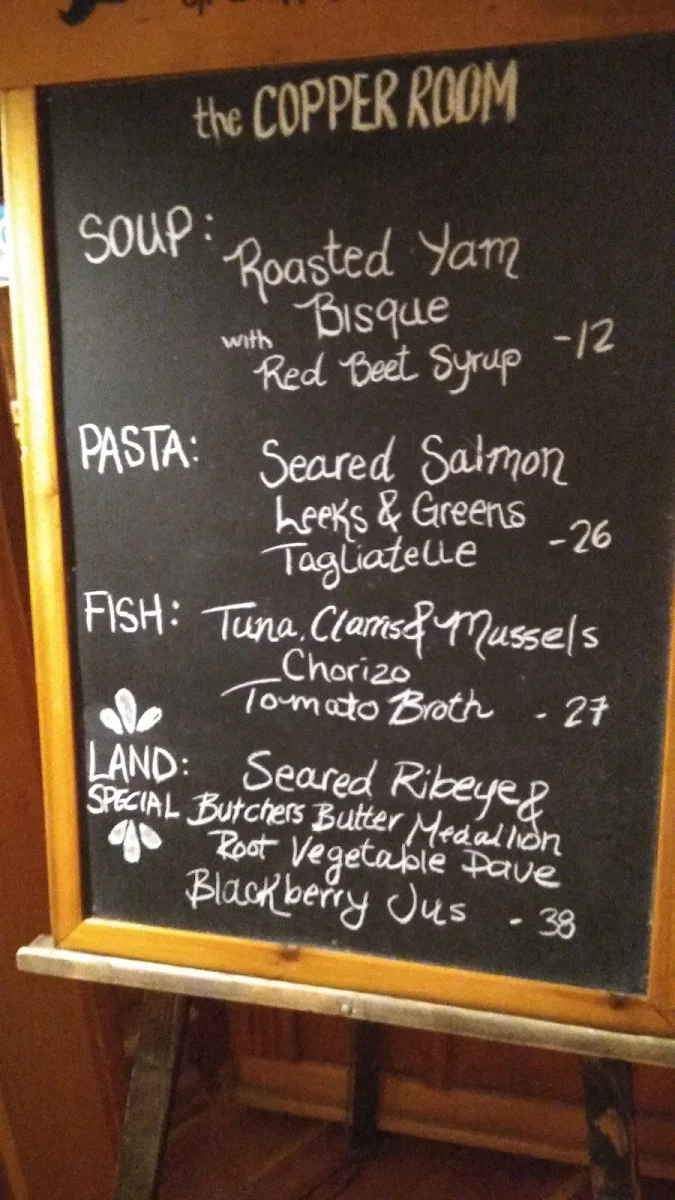 the COPPER ROOM
SOUP: Roasted Yam
Bisque
with Red Beet Syrup -12
PASTA: Seared Salmon
Leeks & Greens
Tagliatelle -26
FISH: Tuna, Clams & Mussels
Chorizo
Tomato Broth - 27
LAND: Seared Ribeye &
SPECIAL Butchers Butter Medallion
Root Vegetable Pave
Blackberry Jus - 38